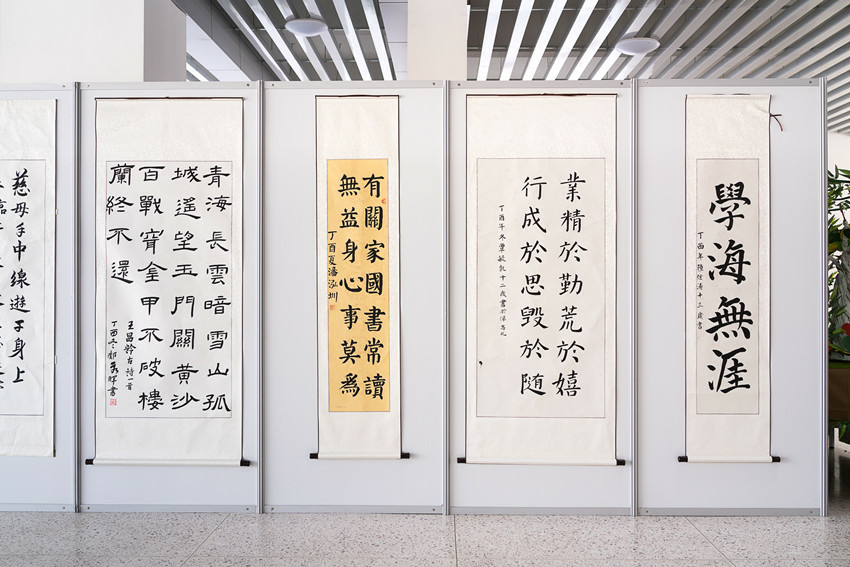 慈母手中線遊子身上
青海長雲暗雪山孤
城遙望玉門關黃沙
百戰穿金甲不破樓
蘭終不還
王昌齡古詩一首
丁酉冬
有關家國書常讀
無益身心事莫爲
丁酉夏潘泓圳
業精於勤荒於嬉
行成於思毀於隨
丁酉年冬 十二歲書於
學海無涯
丁酉年 十三歲書